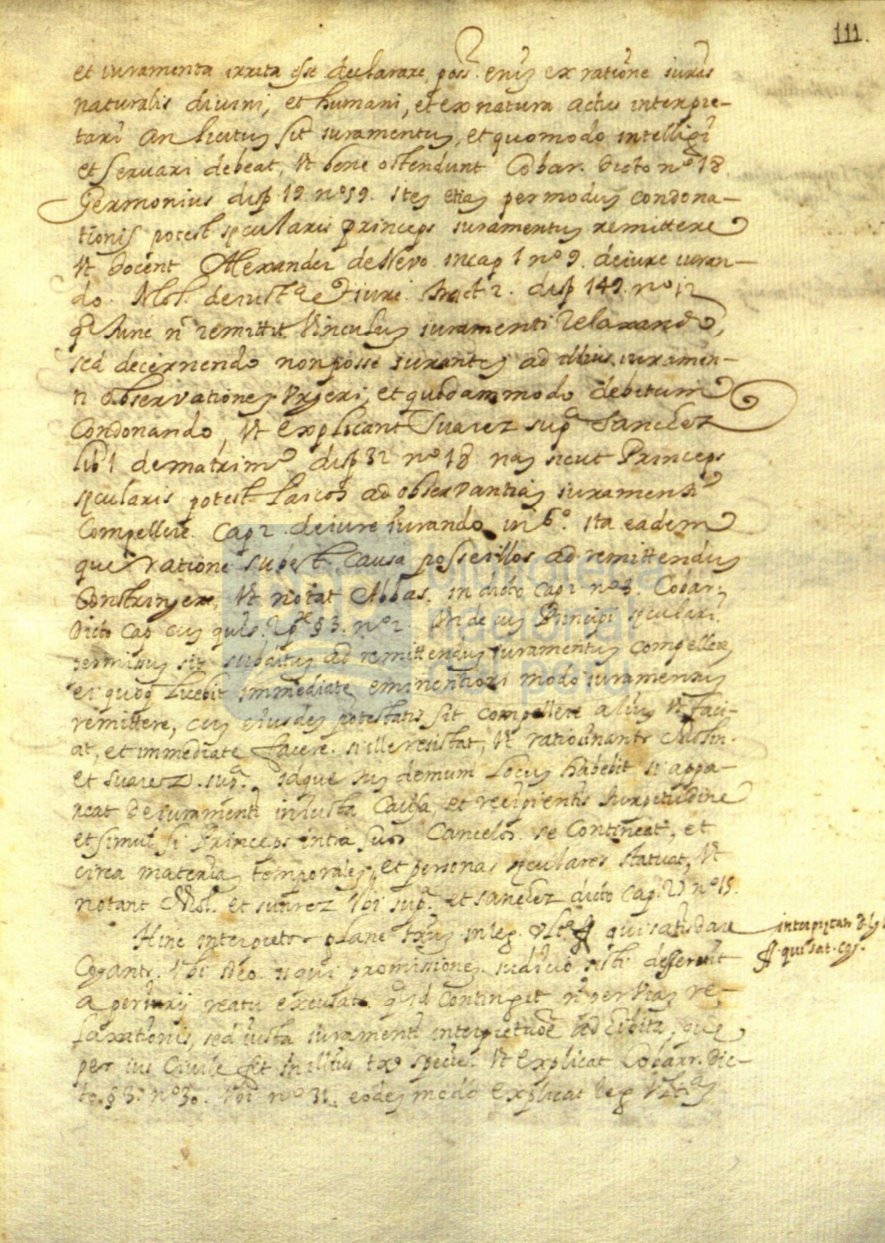 111.
et iuramenta irrita esse declarare, poss. enim ex ratione iuris
naturalis divini, et humani, et ex natura actus interpre-
tari an licitum sit iuramentum, et quomodo intelligi
et servari debeat, Ut bene ostendunt Cobar. dicto nº 18
Germonius disp 19 nº 59. Item etiam per modum condona-
tionis potest secularis princeps iuramentum remittere
Ut docent Alexander de Nevo in cap 1 nº 9. de iure iuran-
do. Mol. de iustª et iure. tract 2. disp 149. nº 12
qª tunc n remittit Vinculum iuramenti relaxando,
sed decernendo non posse iurantem ad illius iuramen-
ti observationem Urgeri, et quodammodo debitum
Condonando, Ut explicant Suarez supª Sanchez
lib 1 de matrimº disp 32 nº 18 nam sicut Princeps
secularis potest laicos ad observantiam iuramenti
Compellere. Cap 2. de iure iurando in 6º. ita eadem
que ratione subest causa posse illos ad remittendum
Constringere, Ut notat Abbas. in dicto cap 2 nº 3. Cobar.
Dicto Cap cum 2 pe § 3. nº 2 Unde cum Principi seculari
permissum sit subditum ad remittendum iuramentum compellere
ei quoq licebit immediate eminentiori modo iuramentum
remittere, cum eiusdem potestatis sit compellere alium Ut faci-
at, et immediate facere. si ille resistat, Ut ratiocinantr Molin.
et Suarez. supª. idque tum demum locum habebit si appa-
reat de iuramenti iniusta causa et recipientis turpitudine
et simul si Princeps intra suos Cancelos se Contineat, et
circa materiam temporalem, et personas seculares statuat, Ut
notant Mol. et Suarez Ubi supª. et Sanchez dicto cap. nº 15.
Hinc interpretor plane in leg. Ultª ff qui satisdare
Cogantr. Ubi ideo is qui promissionem iudicio sisti deserunt
a periurij reatu excusatr. qd Contingit n per viam re-
laxationis, sed iusta iuramenti interpretatione adhibita, que
per ius Civile fit in illius specie. Ut explicat Cobarr. dic-
to. § 3. nº 30. Ubi nº 31. eodem modo explicat leg Ultam
interpretatr d. leg
ff qui sat. cog.
biblioteca
nacional
del perú